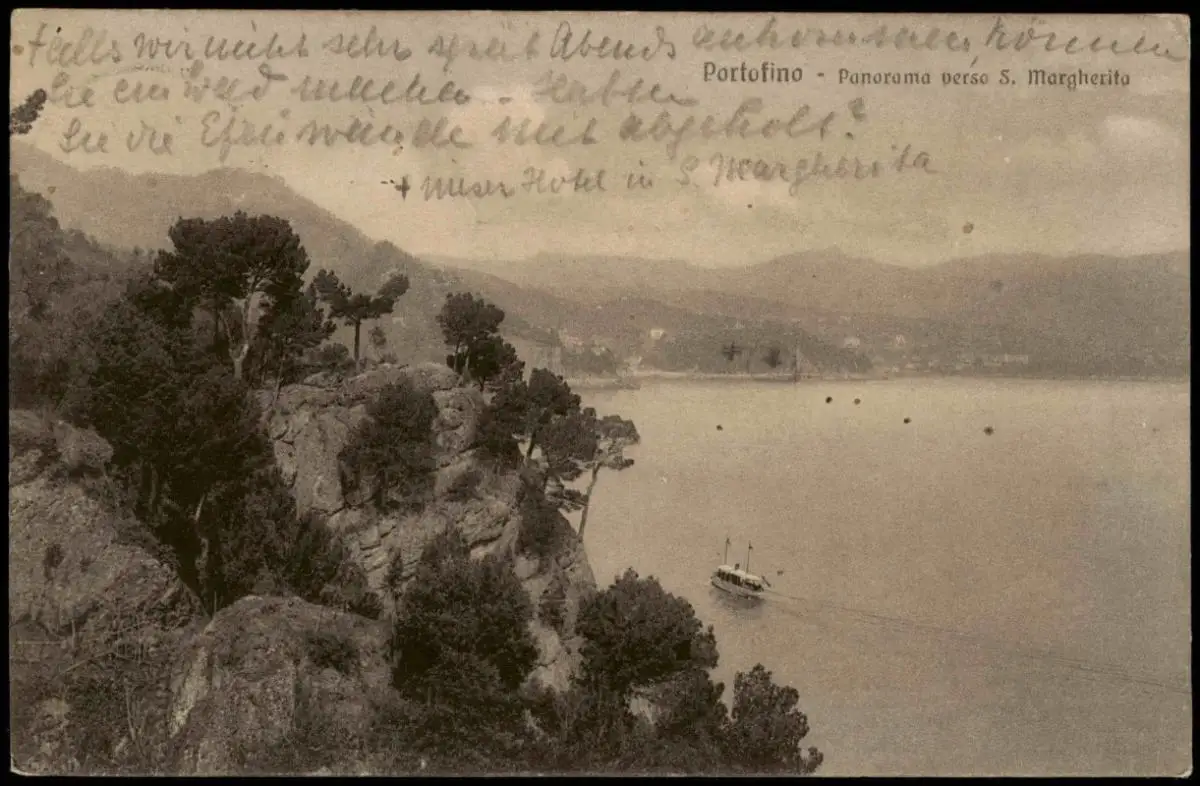 Falls wir nicht sehr spät Abends ankommen, können
Sie ein Bad machen. Haben
Sie die Einwände mit abgeholt?
+ unser Hotel in S. Margherita
Portofino - Panorama verso S. Margherita